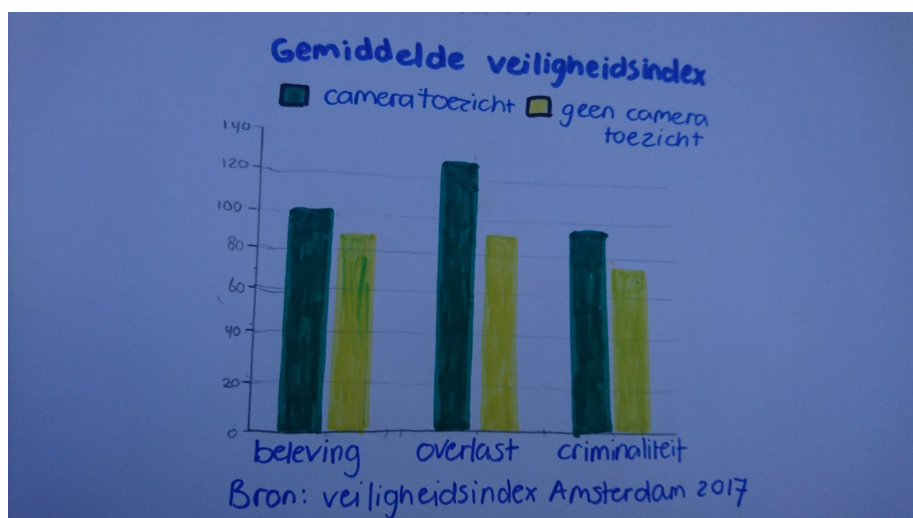 Gemiddelde veiligheidsindex
cameratoezicht geen camera
toezicht
140
120
100
80
60
40
20
0
beleving overlast criminaliteit
Bron: veiligheidsindex Amsterdam 2017